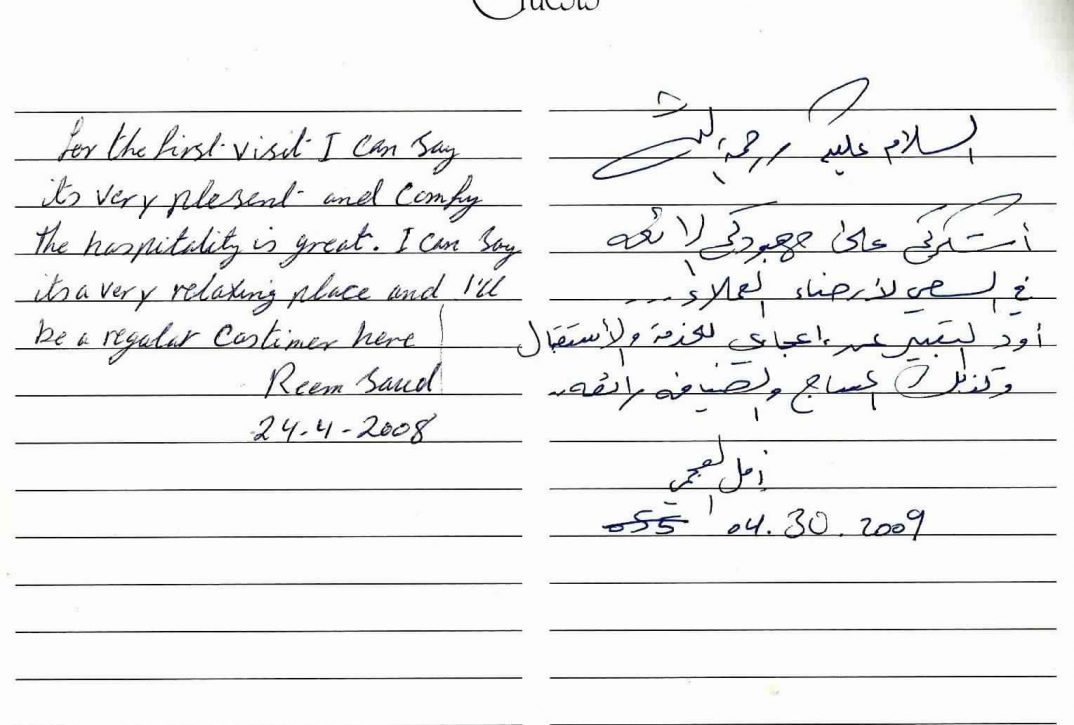 Guests
for the first visit I can say
its very plesent and comfy
the haspitality is great. I can say
its a very relaxing place and I'll
be a regular Costimer here
Reem Saud
24-4-2008
السلام عليكم ورحمة الله
أشكركم على جهودكم الرائعه
في السعي لأرضاء العملاء ...
أود التعبير عن اعجابي للخدمة والأستقبال
وكذلك المساج والضيافه رائعه..
أمل العجمي
055 04.30.2009